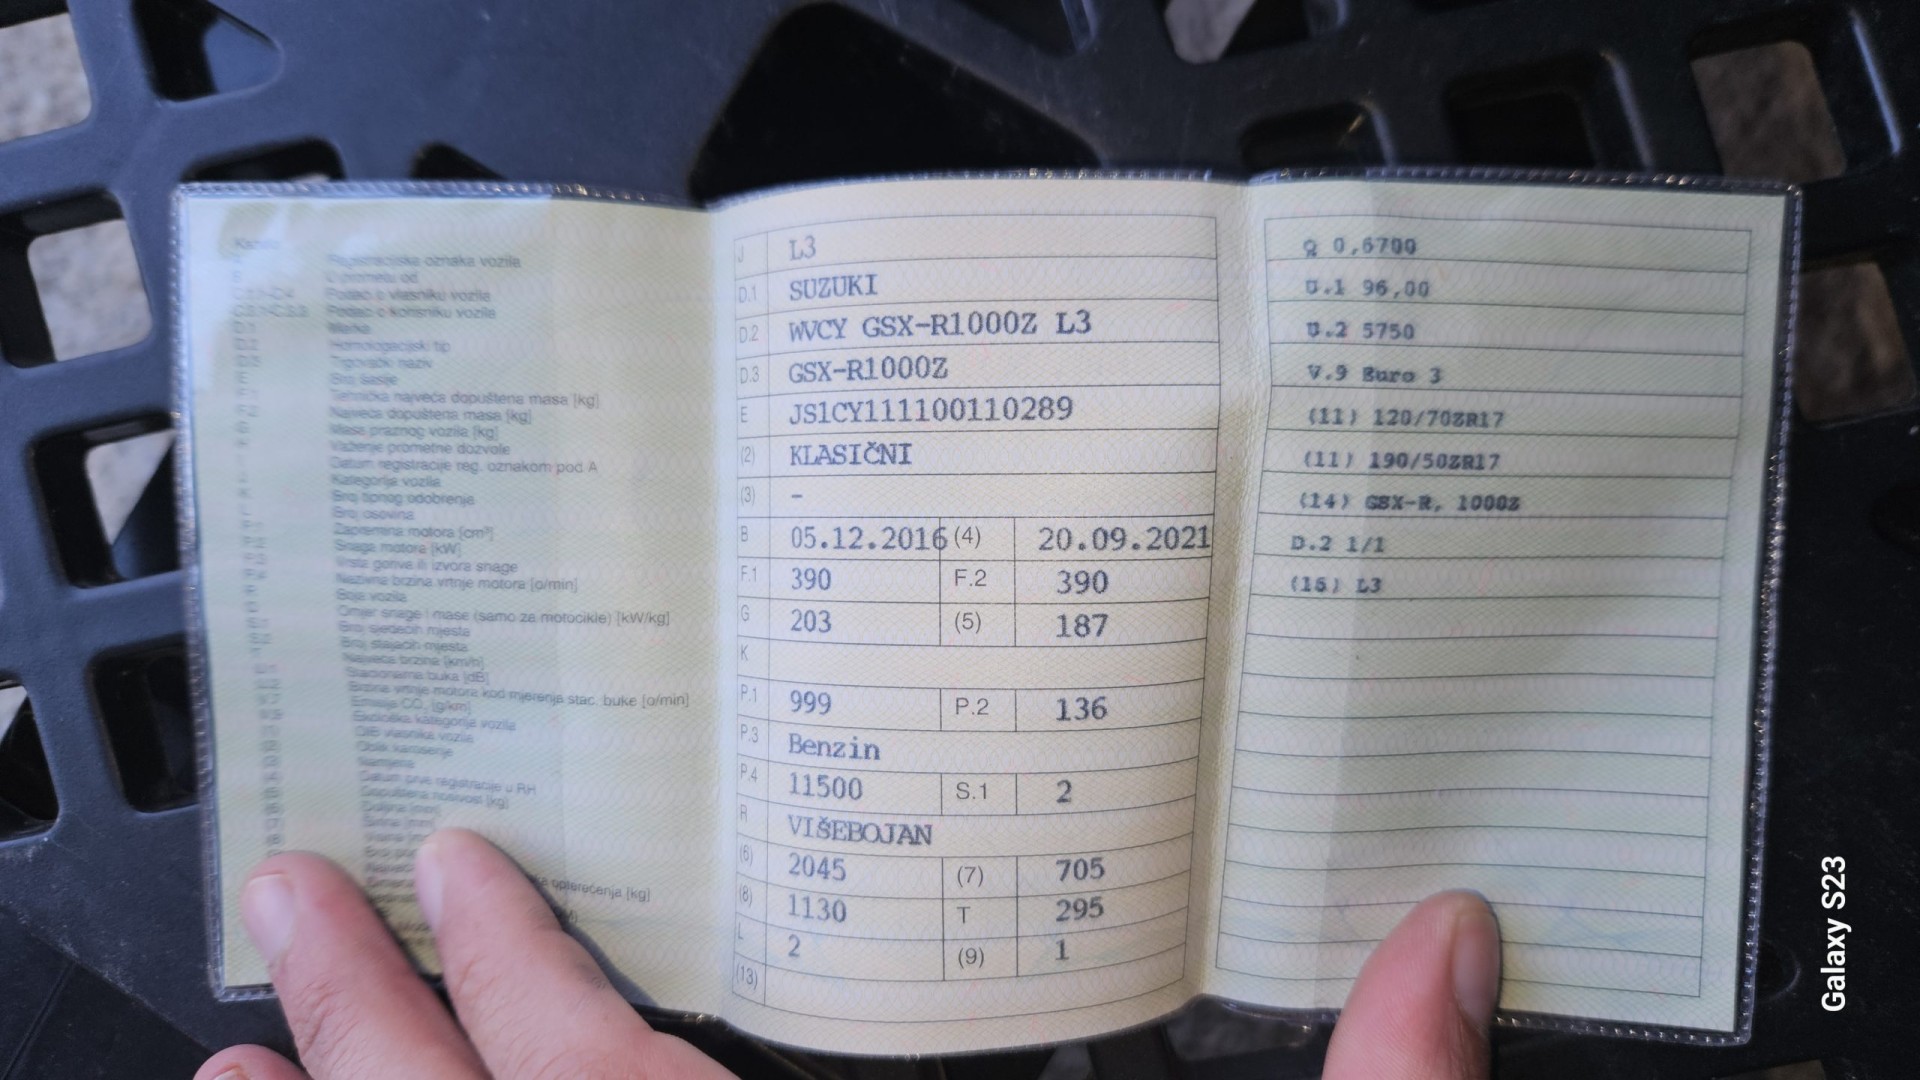 Registracijska oznaka vozila
U prometu od
Podaci o vlasniku vozila
Podaci o korisniku vozila
D.1 Marka
D.2 Homologacijski tip
D.3 Trgovački naziv
E Broj šasije
F.1 Tehnička najveća dopuštena masa [kg]
F.2 Najveća dopuštena masa [kg]
G Masa praznog vozila [kg]
Važenje prometne dozvole
Datum registracije reg. oznakom pod A
J Kategorija vozila
K Broj tipnog odobrenja
L Broj osovina
P.1 Zapremina motora [cm³]
P.2 Snaga motora [kW]
P.3 Vrsta goriva ili izvora snage
P.4 Nazivna brzina vrtnje motora [o/min]
R Boja vozila
Q Omjer snage i mase (samo za motocikle) [kW/kg]
S.1 Broj sjedećih mjesta
S.2 Broj stajaćih mjesta
T Najveća brzina [km/h]
U.1 Stacionarna buka [dB]
U.2 Brzina vrtnje motora kod mjerenja stac. buke [o/min]
V.7 Emisija CO₂ [g/km]
V.9 Ekološka kategorija vozila
(1) OIB vlasnika vozila
(2) Oblik karoserije
(3) Namjena
(4) Datum prve registracije u RH
(5) Dopuštena nosivost [kg]
(6) Dužina [mm]
(7) Širina [mm]
(8) Visina [mm]
opterećenja [kg]
J L3
D.1 SUZUKI
D.2 WVCY GSX-R1000Z L3
D.3 GSX-R1000Z
E JS1CY111100110289
(2) KLASIČNI
(3) -
B 05.12.2016 (4) 20.09.2021
F.1 390 F.2 390
G 203 (5) 187
K
P.1 999 P.2 136
P.3 Benzin
P.4 11500 S.1 2
R VIŠEBOJAN
(6) 2045 (7) 705
(8) 1130 T 295
L 2 (9) 1
(13)
Q 0,6700
U.1 96,00
U.2 5750
V.9 Euro 3
(11) 120/70ZR17
(11) 190/50ZR17
(14) GSX-R, 1000Z
D.2 1/1
(16) L3
Galaxy S23